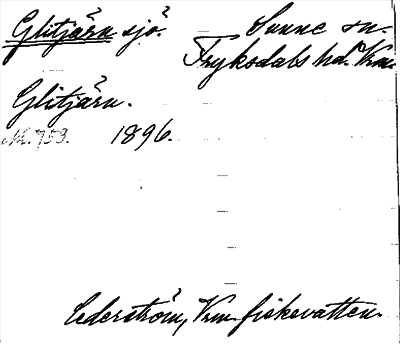 Glitjärn sjö.
Sunne sn.
Fryksdals hd. Vrm.
Glitjärn.
1896.
Cederström, Vrm. fiskevatten.